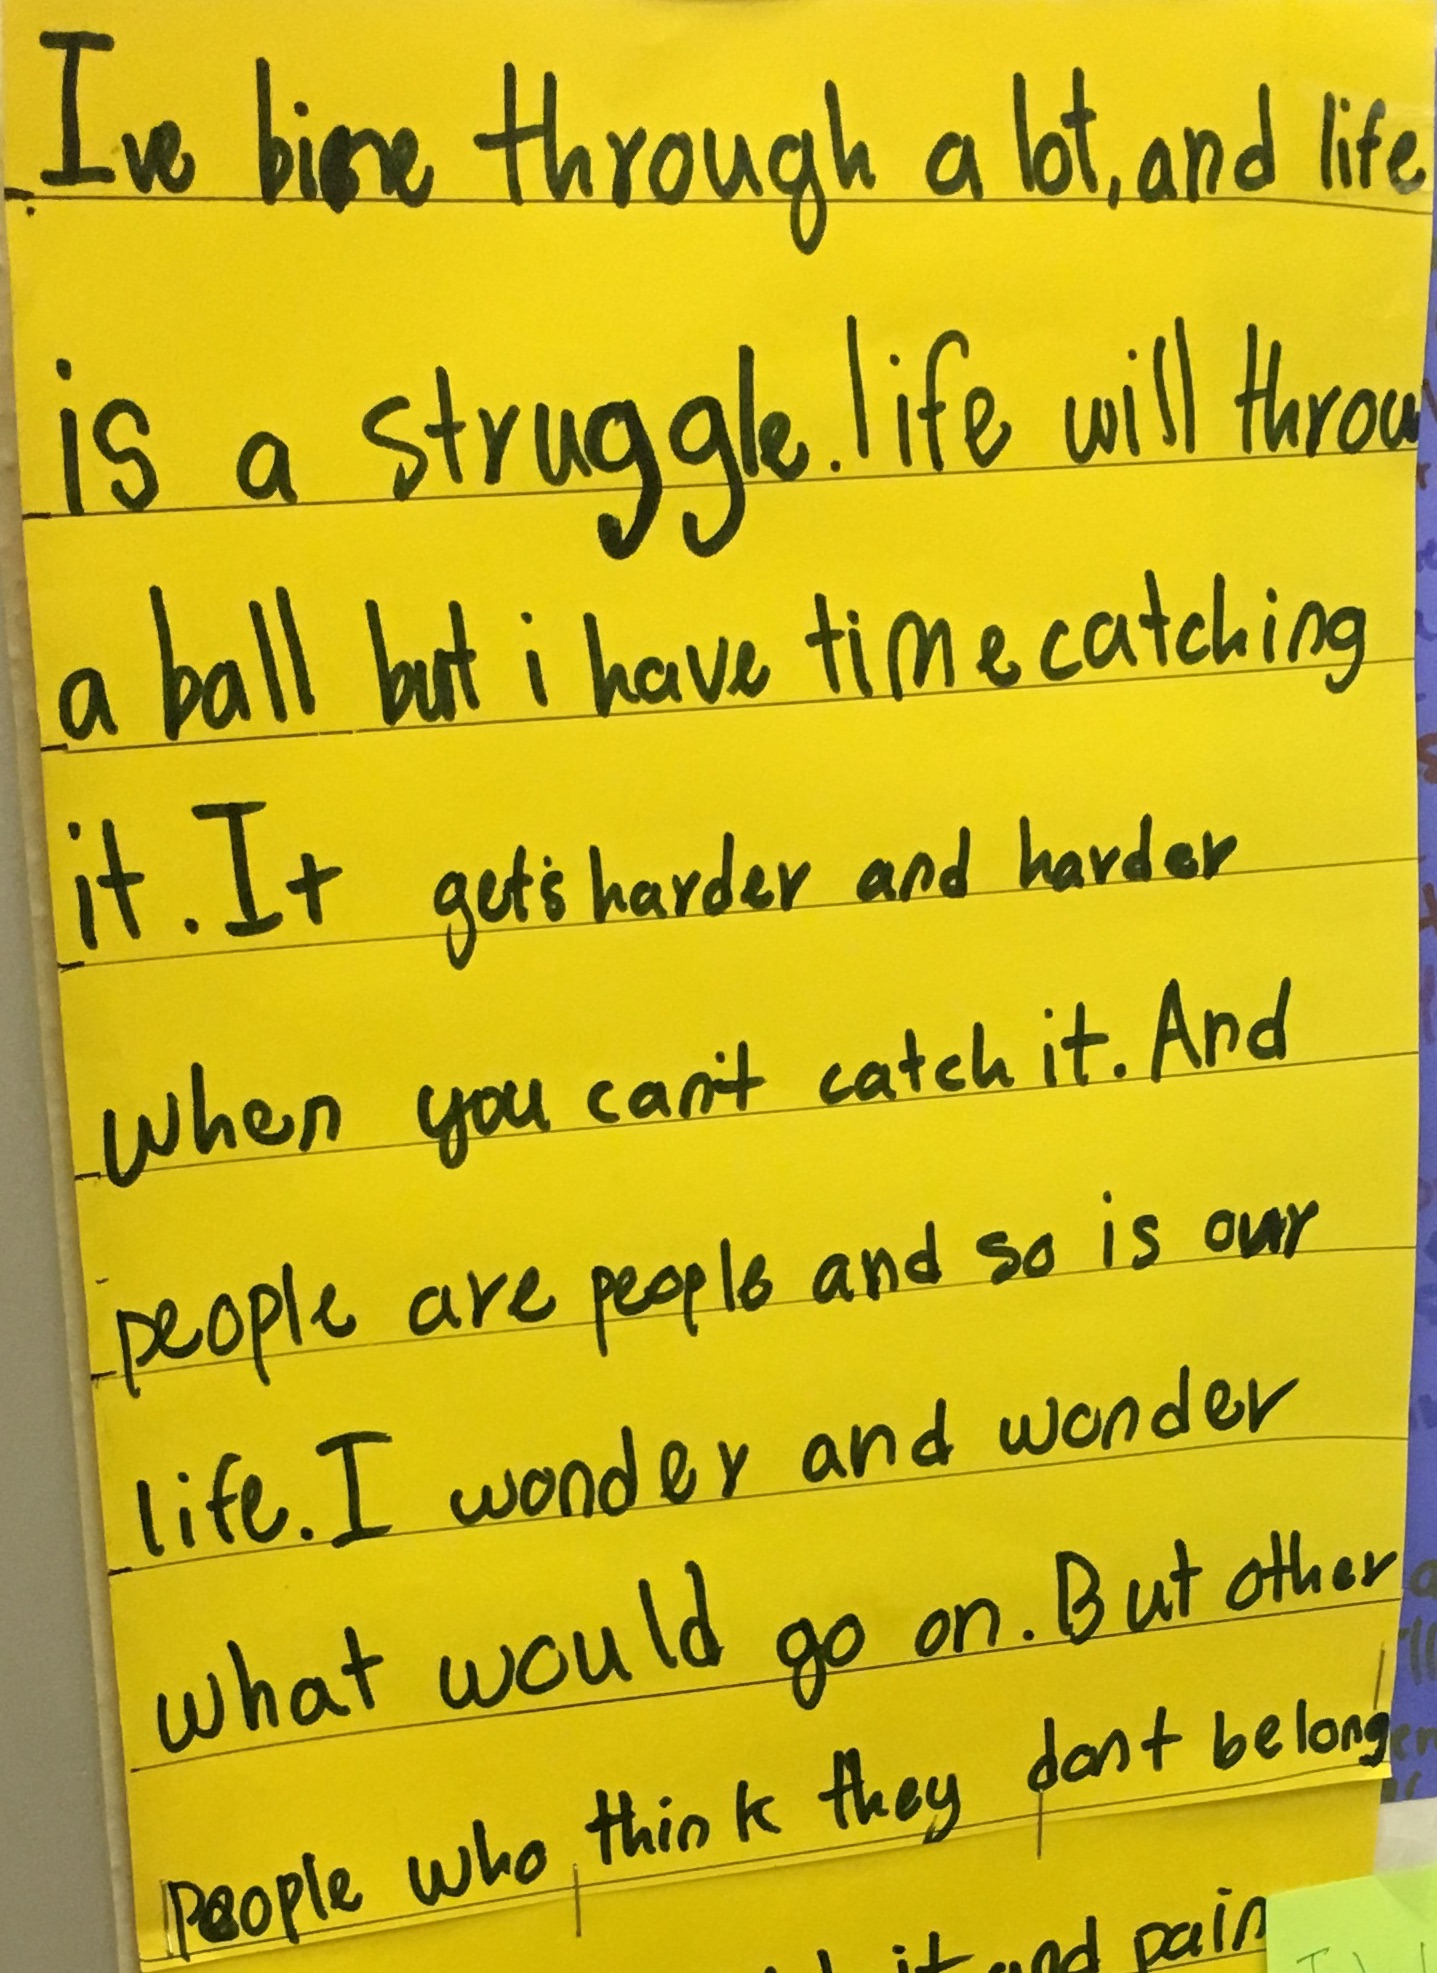 Ive bine through a lot, and life
is a struggle. life will throw
a ball but i have time catching
it. It get's harder and harder
when you can't catch it. And
people are people and so is our
life. I wonder and wonder
what would go on. But other
people who think they dont belong
it and pain